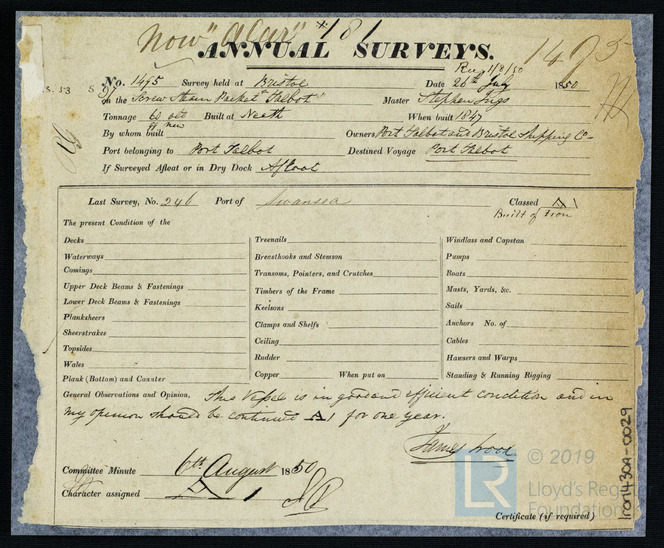 Now "Alar" *181
ANNUAL SURVEYS. 1495
Rec 1/8/50
No. 1495 Survey held at Bristol Date 26th July 1850
on the Screw Steam Packet "Talbot" Master Stephen
Tonnage 60 old Built at Neath When built 1847
new
By whom built Owners Port Talbot and Bristol Shipping Co
Port belonging to Port Talbot Destined Voyage Port Talbot
If Surveyed Afloat or in Dry Dock Afloat
Last Survey, No. 246 Port of Swansea Classed A 1
Built of Iron
The present Condition of the
Decks Treenails Windlass and Capstan
Waterways Breasthooks and Stemson Pumps
Comings Transoms, Pointers, and Crutches Boats
Upper Deck Beams & Fastenings Timbers of the Frame Masts, Yards, &c.
Lower Deck Beams & Fastenings Keelsons Sails
Planksheers Clamps and Shelfs Anchors No. of
Sheerstrakes Ceiling Cables
Topsides Rudder Hawsers and Warps
Wales Copper When put on Standing & Running Rigging
Plank (Bottom) and Counter
General Observations and Opinion, This Vessel is in good and efficient condition and in
my opinion should be continued A1 for one year.
James Wood
Committee Minute 6th August 1850
Character assigned A 1
Certificate (if required)
Iron1430a-0029
LR © 2019
Lloyd's Register
Foundation